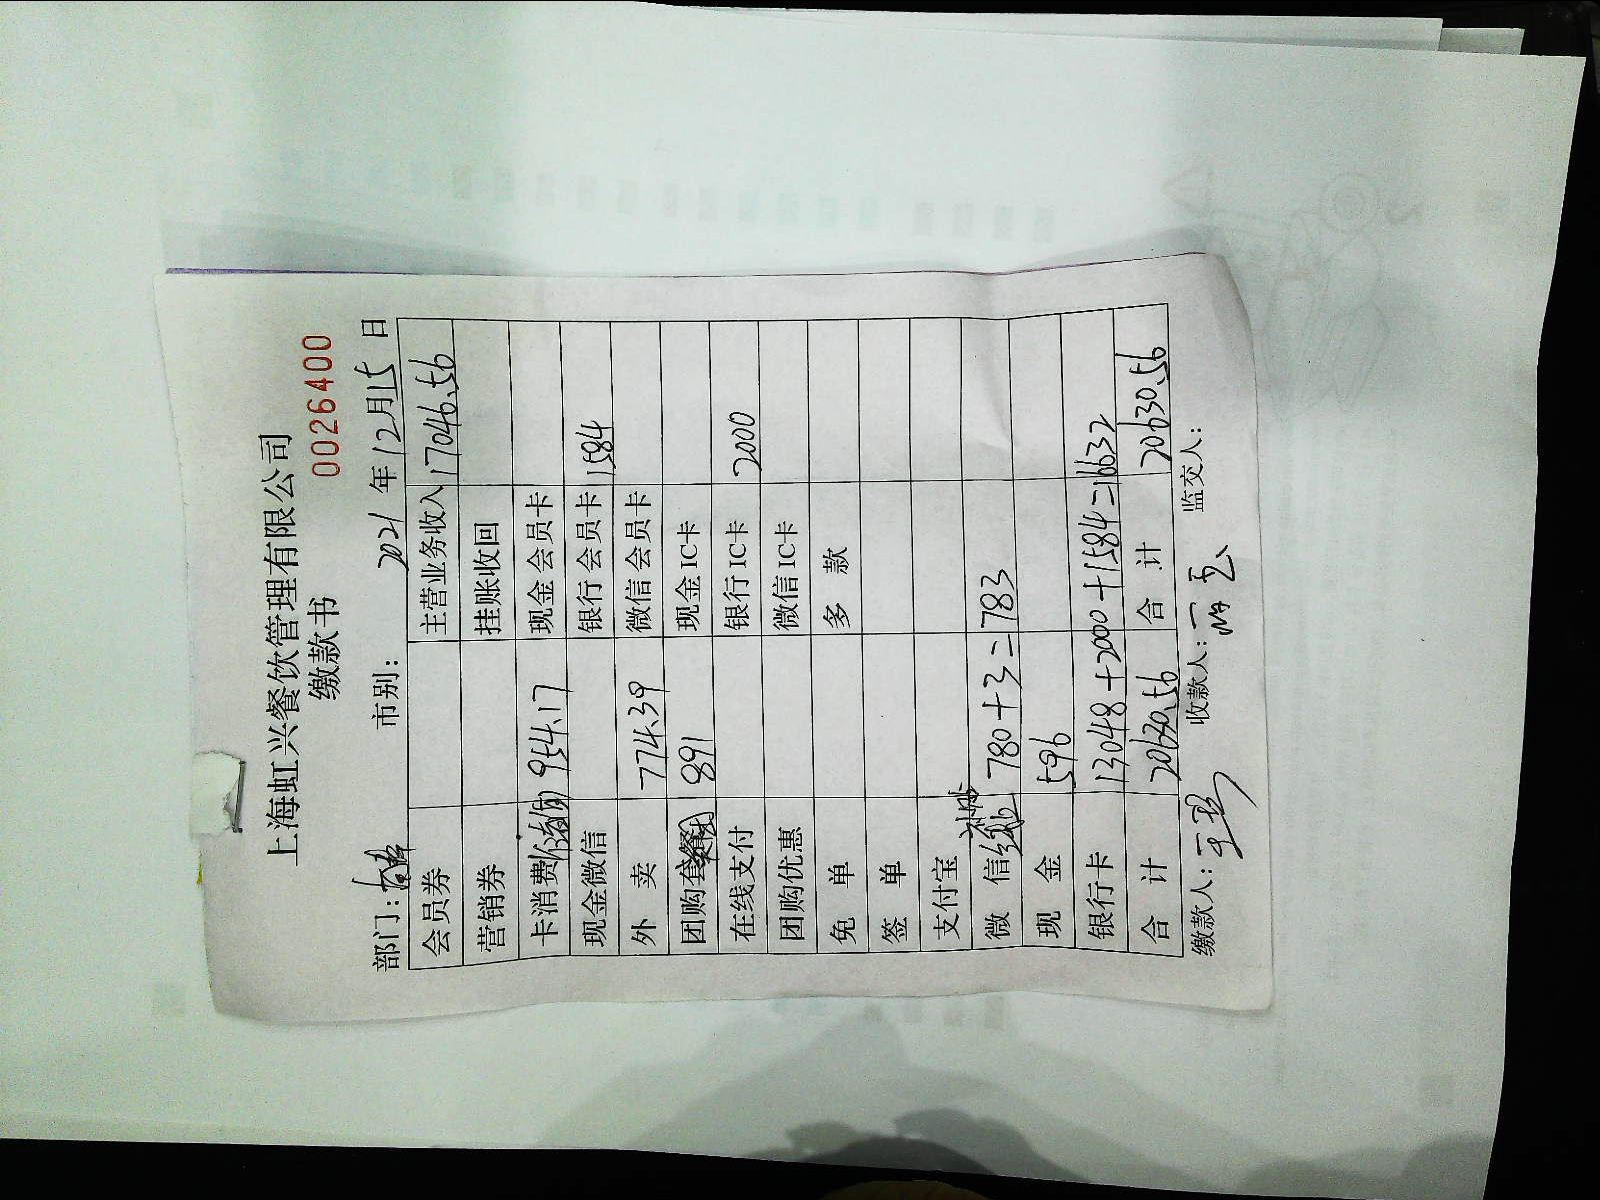 上海虹兴餐饮管理有限公司
缴款书 0026400
部门: 市别: 2021年12月15日
会员券 主营业务收入 17046.56
营销券 挂账收回
卡消费 954.17 现金会员卡
现金微信 银行会员卡 1584
外 卖 774.39 微信会员卡
团购套餐 891 现金IC卡
在线支付 银行IC卡 2000
团购优惠 微信IC卡
免 单 多 款
签 单
支付宝
微 信 780+3=783
现 金 596
银行卡 13048+2000+1584=16632
合 计 20630.56 合 计 20630.56
缴款人: 收款人: 监交人: